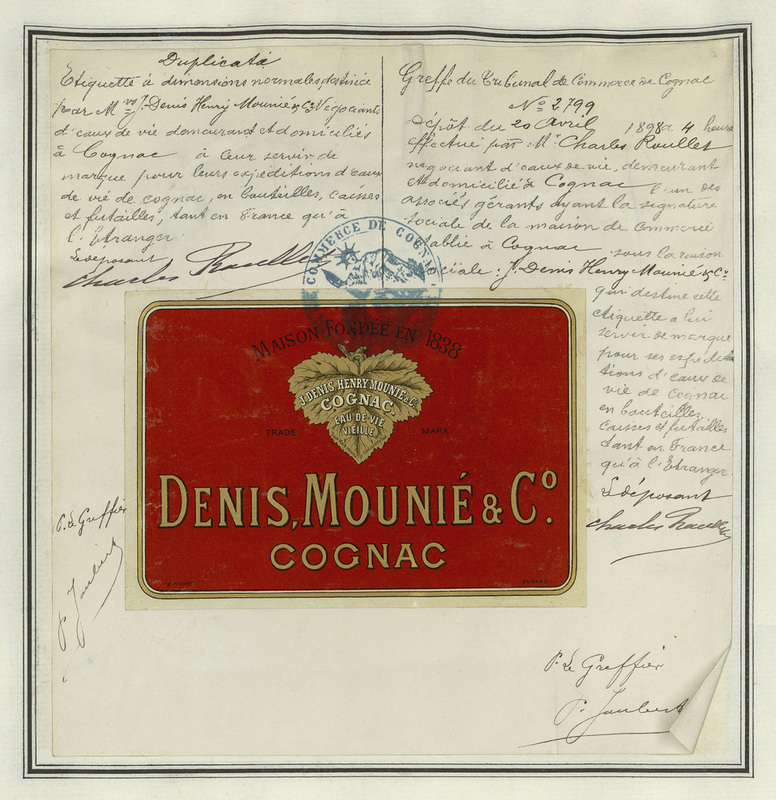 Duplicata
Etiquette à dimensions normales, destinée
par Mrs J. Denis Henry Mounié & Co Négociants
d'eaux de vie demeurant et domiciliés
à Cognac à leur servir de
marque pour leurs expéditions d'eaux
de vie de cognac, en bouteilles, caisses
et futailles, tant en France qu'à
l'Etranger.
Le déposant
Charles Roullet
Greffe du Tribunal de Commerce de Cognac
No 2799
Dépôt du 20 Avril 1898 à 4 heures
effectué par Mr Charles Roullet
négociant d'eaux de vie, demeurant
et domicilié à Cognac l'un des
associés gérants ayant la signature
sociale de la maison de commerce
établie à Cognac sous la raison
sociale: J. Denis Henry Mounié & Co
qui destine cette
étiquette à lui
servir de marque
pour ses expédi-
tions d'eaux de
vie de cognac
en bouteilles,
caisses et futailles
tant en France
qu'à l'Etranger.
Le déposant
Charles Roullet
COMMERCE DE COGNAC
MAISON FONDÉE EN 1838
J. DENIS, HENRY MOUNIÉ & Co.
COGNAC.
EAU DE VIE
VIEILLE
TRADE MARK
DENIS, MOUNIÉ & Co.
COGNAC
COGNAC
P. Le Greffier
P. Jaubert
P. Le Greffier
P. Jaubert